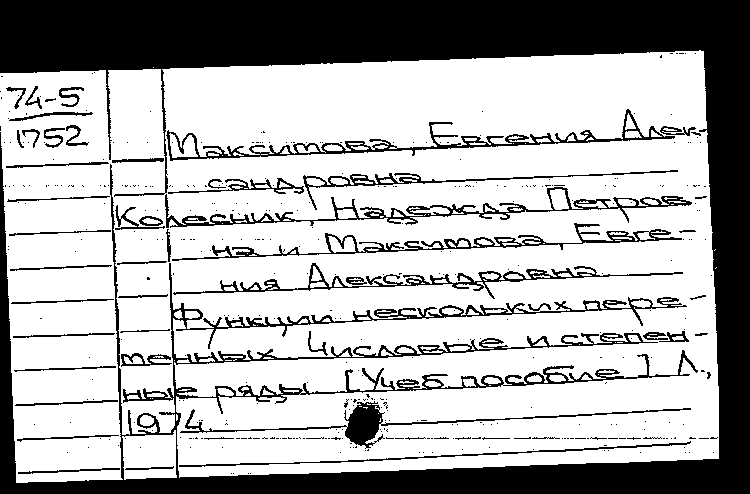 74-5
1752
Максимова, Евгения Алек-
сандровна.
Колесник, Надежда Петров-
на и Максимова, Евге-
ния Александровна.
Функции нескольких пере-
менных. Числовые и степен-
ные ряды. [Учеб. пособие] Л.,
1974.